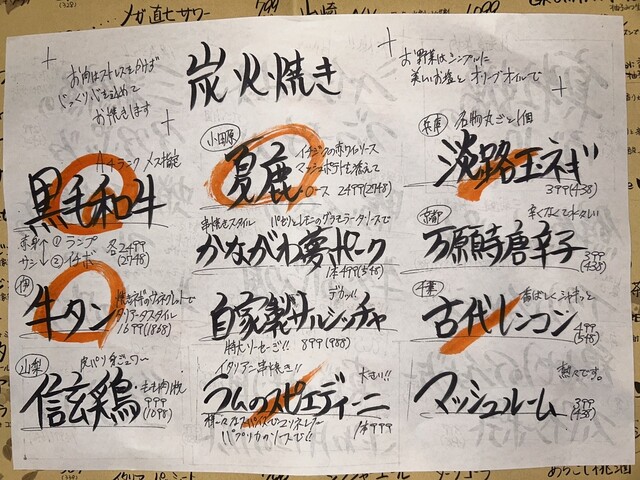 メガ直七サワー 799
山崎
1099
炭火焼き
お肉はストレスをかけず
じっくり心を込めて
お焼きします
お野菜はシンプルに
美しいお塩とオリーブオイルで
A4ランク メス指定
黒毛和牛
赤身↑① ランプ 各2499
サシ↓② イチボ (2748)
牛タン
タリアータスタイル
1699(1868)
山梨
皮パリ身ジュワ〜
信玄鶏
もも肉1枚
999
(1098)
小田原
イチジクの赤ワインソース
マッシュポテトを添えて
夏鹿
ロース 2499(2748)
串焼きスタイル パセリとレモンのグラモラータソースで
かながわ夢ポーク
1本499(548)
デカッ!!
自家製サルシッチャ
特大ソーセージ!! 899(988)
イタリアン串焼き!! 大きい!!
ラムのスピエディーニ
様々なスパイスでマリネしてー
パプリカのソースで!!
1本999
兵庫 名物丸ごと1個
淡路玉ネギ
399(438)
京都 辛くなくて水々しい
万願寺唐辛子
399
(438)
千葉 香ばしくシャキッと
古代レンコン
499
(548)
熱々です。
マッシュルーム
399
(438)